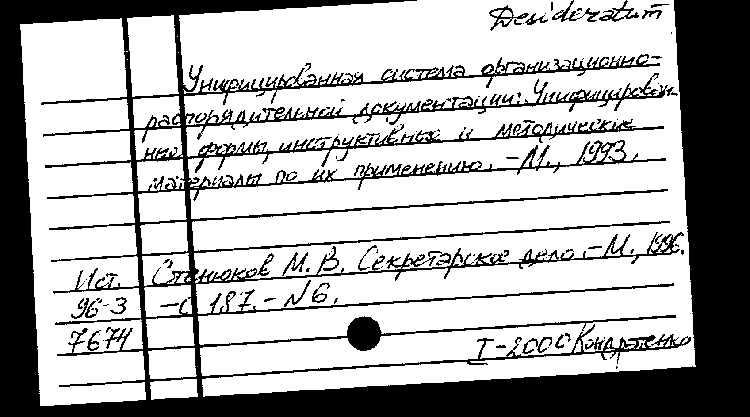 Desideratum
Унифицированная система организационно-
распорядительной документации: Унифицирован-
ные формы, инструктивные и методические
материалы по их применению. -М., 1993.
Ист. Стенюков М. В. Секретарское дело. -М., 1996.
96-3 -С 187. - N6.
7674
I-2000 Кондратенко